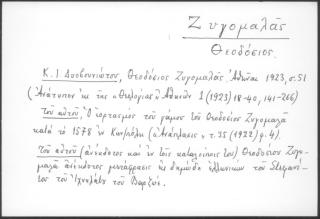 Ζυγομαλᾶς
Θεοδόσιος.
Κ. Ι. Δυοβουνιώτου, Θεοδόσιος Ζυγομαλᾶς Ἀθῆναι 1923, σ. 51
(Ἀνάτυπον ἐκ τῆς "Θεολογίας" Ἀθηνῶν 1 (1923) 18-40, 141-266)
Τοῦ αὐτοῦ Ὁ ἑορτασμὸς τοῦ γάμου τοῦ Θεοδοσίου Ζυγομαλᾶ
κατὰ τὸ 1578 ἐν Κων/πόλει ("Ἀνάπλασις" τ. 35 (1922) φ. 4).
Τοῦ αὐτοῦ (ἀνέκδοτος καὶ ἐν τοῖς καταλοίποις του) Θεοδοσίου Ζυγο-
μαλᾶ ἀνέκδοτος μετάφρασις εἰς δημώδη ἑλληνικὴν τοῦ Στεφανί-
του τοῦ Ἰχνηλάτου τοῦ